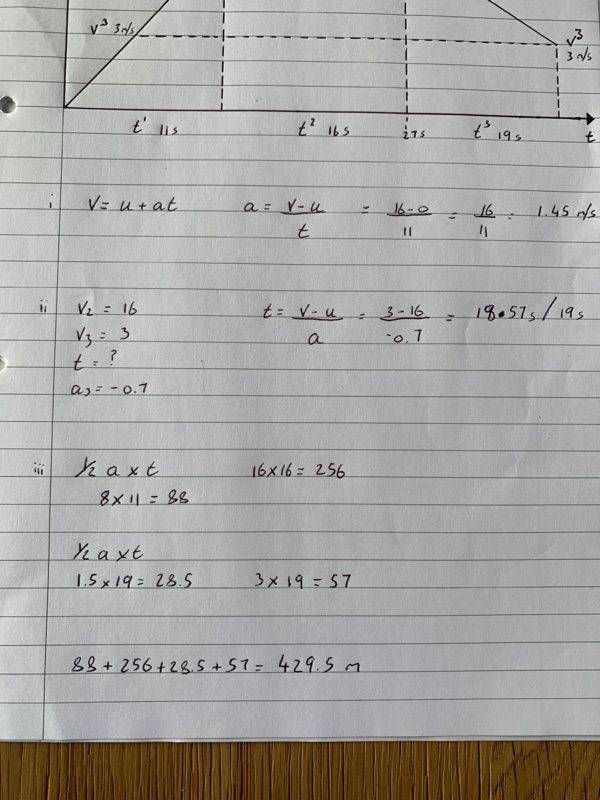 v³ 3 m/s
v³
3 m/s
t¹ 11s t² 16s 27s t³ 19s t
i V = u + at a = v-u / t = 16-0 / 11 = 16 / 11 = 1.45 m/s
ii V₂ = 16 t = v-u / a = 3-16 / -0.7 = 18.57s / 19s
V₃ = 3
t = ?
a₃ = -0.7
iii ½ a x t 16 x 16 = 256
8 x 11 = 88
½ a x t
1.5 x 19 = 28.5 3 x 19 = 57
88 + 256 + 28.5 + 57 = 429.5 m